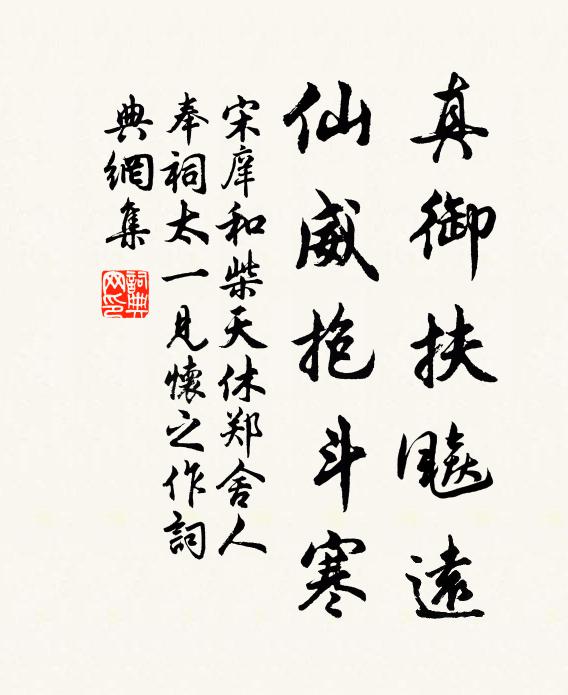 真御扶飈遠
仙威抱斗寒
宋庠和柴天休郑舍人
奉祠太一見懷之作詞
典網集
詞典網印